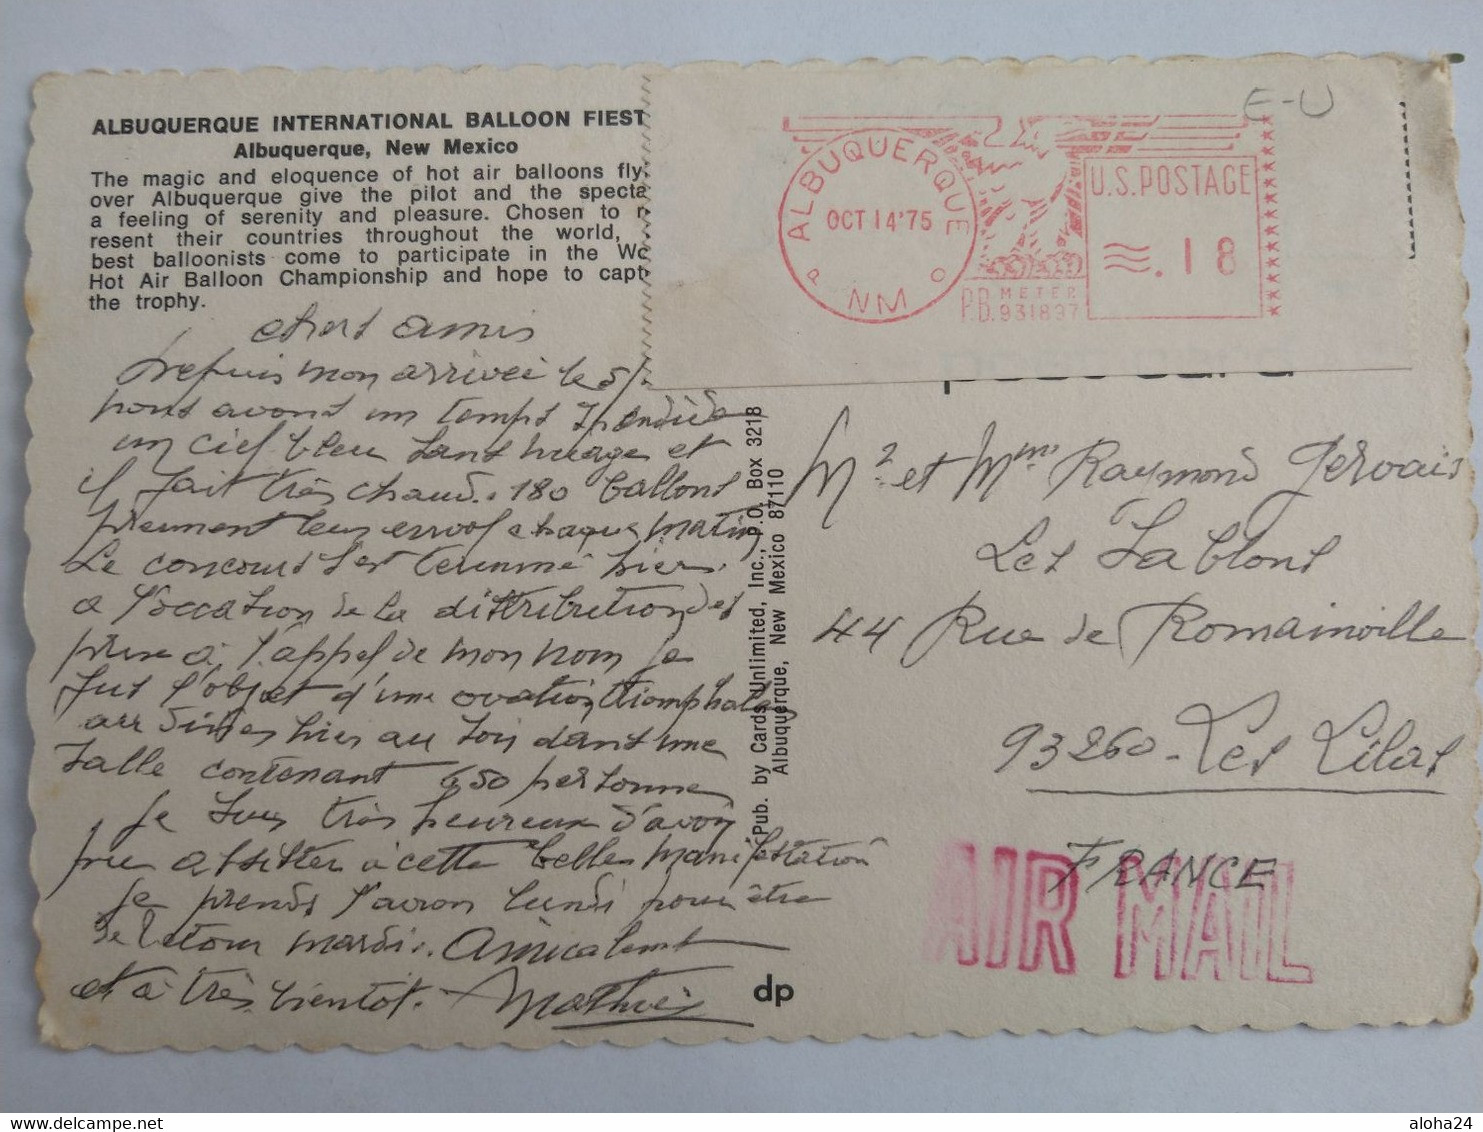 ALBUQUERQUE INTERNATIONAL BALLOON FIEST
Albuquerque, New Mexico
The magic and eloquence of hot air balloons fly
over Albuquerque give the pilot and the specta
a feeling of serenity and pleasure. Chosen to r
resent their countries throughout the world,
best balloonists come to participate in the Wo
Hot Air Balloon Championship and hope to capt
the trophy.
chers amis
Depuis mon arrivée le 5
nous avons un temps splendide
un ciel bleu sans nuages et
il fait très chaud. 180 ballons
prennent leur envol chaque matin
Le concours s'est terminé hier.
a l'occasion de la distribution des
prix à l'appel de mon nom je
fus l'objet d'une ovation triomphale
au hier au soir dans une
salle contenant 650 personnes
je suis très heureux d'avoir
pu assister à cette belle manifestation
je prends l'avion lundi pour être
de retour mardi. Amicalement
et à très bientôt. Mathieu
Pub. by Cards Unlimited, Inc., P.O. Box 3218
Albuquerque, New Mexico 87110
dp
E-U
ALBUQUERQUE
OCT 14'75
P NM O
U.S. POSTAGE
.18
P.B. METER
931897
Mr et Mme Raymond Gervais
Les Sablons
44 Rue de Romainville
93260 - Les Lilas
FRANCE
AIR MAIL
aloha24